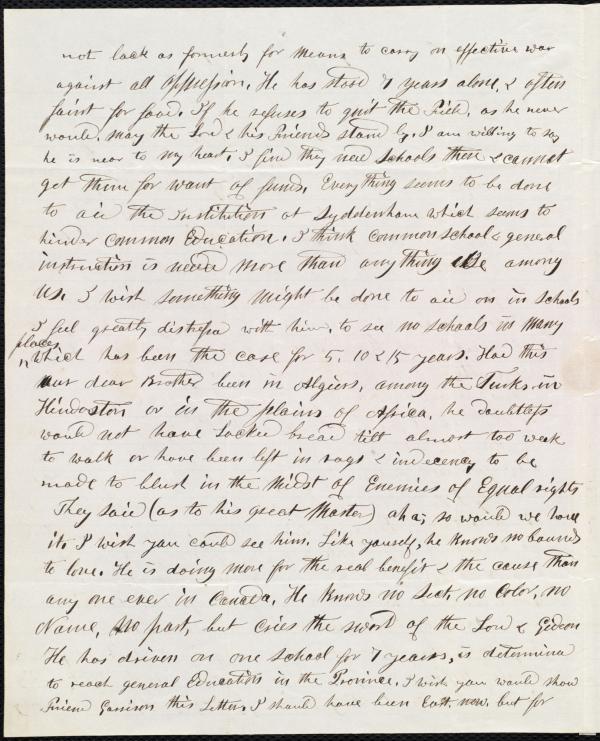 not lack as formerly for means to carry on effective war
against all oppression. He has stood 7 years alone, & often
faint for food. If he refuses to quit the Field, as he never
would, may the Lord & his Friends stand by. I am willing to say
he is near to my heart. I find they need schools there & cannot
get them for want of funds. Everything seems to be done
to aid the Institution at Syddenham which seems to
hinder common Education. I think common school & general
instruction is needed more than any thing else among
us. I wish something might be done to aid on in schools
I feel greatly distressed with him, to see no schools in many
places
which has been the case for 5, 10 & 15 years. Had this
our dear Brother been in Algiers, among the Turks in
Hindoston or in the plains of Africa, he doubtless
would not have lacked bread till almost too weak
to walk or have been left in rags & indecency to be
made to blush in the midst of Enemies of Equal rights
They said (as to his great Master) aha, so would we have
it. I wish you could see him. Like yourself, he knows no bounds
to love. He is doing more for the real benefit & the cause than
any one ever in Canada. He knows no Sect, no Color, no
Name, no part, but cries the sword of the Lord & Gideon
He has driven on one school for 7 years, is determined
to reach general Education in the Province. I wish you would show
Friend Garrison this Letter. I should have been East now, but for